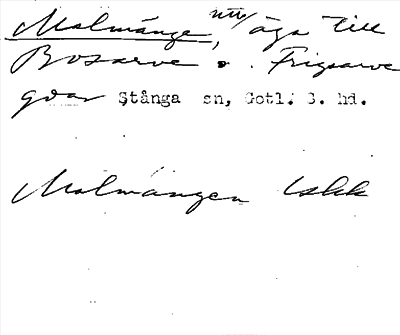 Malmänge, äga till
Bosarve o. Frigsarve
gdar Stånga sn, Gotl. S. hd.
Malmängen